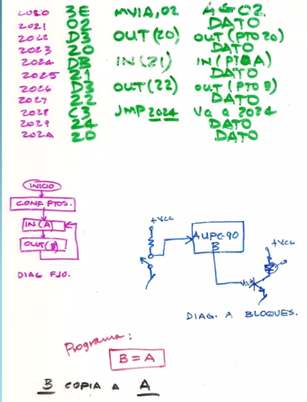 2020 3E MVIA,02 A←02
2021 02 DATO
2022 D3 OUT(20) OUT(PTO20)
2023 20 DATO
2024 DB IN(21) IN(PTOA)
2025 21 DATO
2026 D3 OUT(22) OUT(PTO B)
2027 22 DATO
2028 C3 JMP 2024 Va a 2024
2029 24 DATO
202A 20 DATO
INICIO
CONF. PTOS.
IN(A)
OUT(B)
DIAG FJO.
+Vcc
AUPC-90
B
+Vcc
DIAG. A BLOQUES.
Programa:
B = A
B COPIA A A